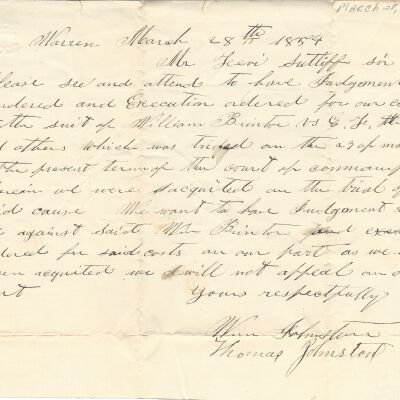 MARCH 28,
Warren March 28th 1854
Mr Levi Sutliff sir
lease see and attend to have Judgemen
ndered and Execution ordered for our co
the suit of William Brinton vs C. F.
d others which was tried on the 23 of ma
the present term of the court of common p
herein we were acquited on the trial of
id cause We want to have Judgement
d against said Wm Brinton and exec
dered for said costs on our part as we
en acquited we will not appeal on
rt
Yours respectfully
Wm Johnston
Thomas Johnston